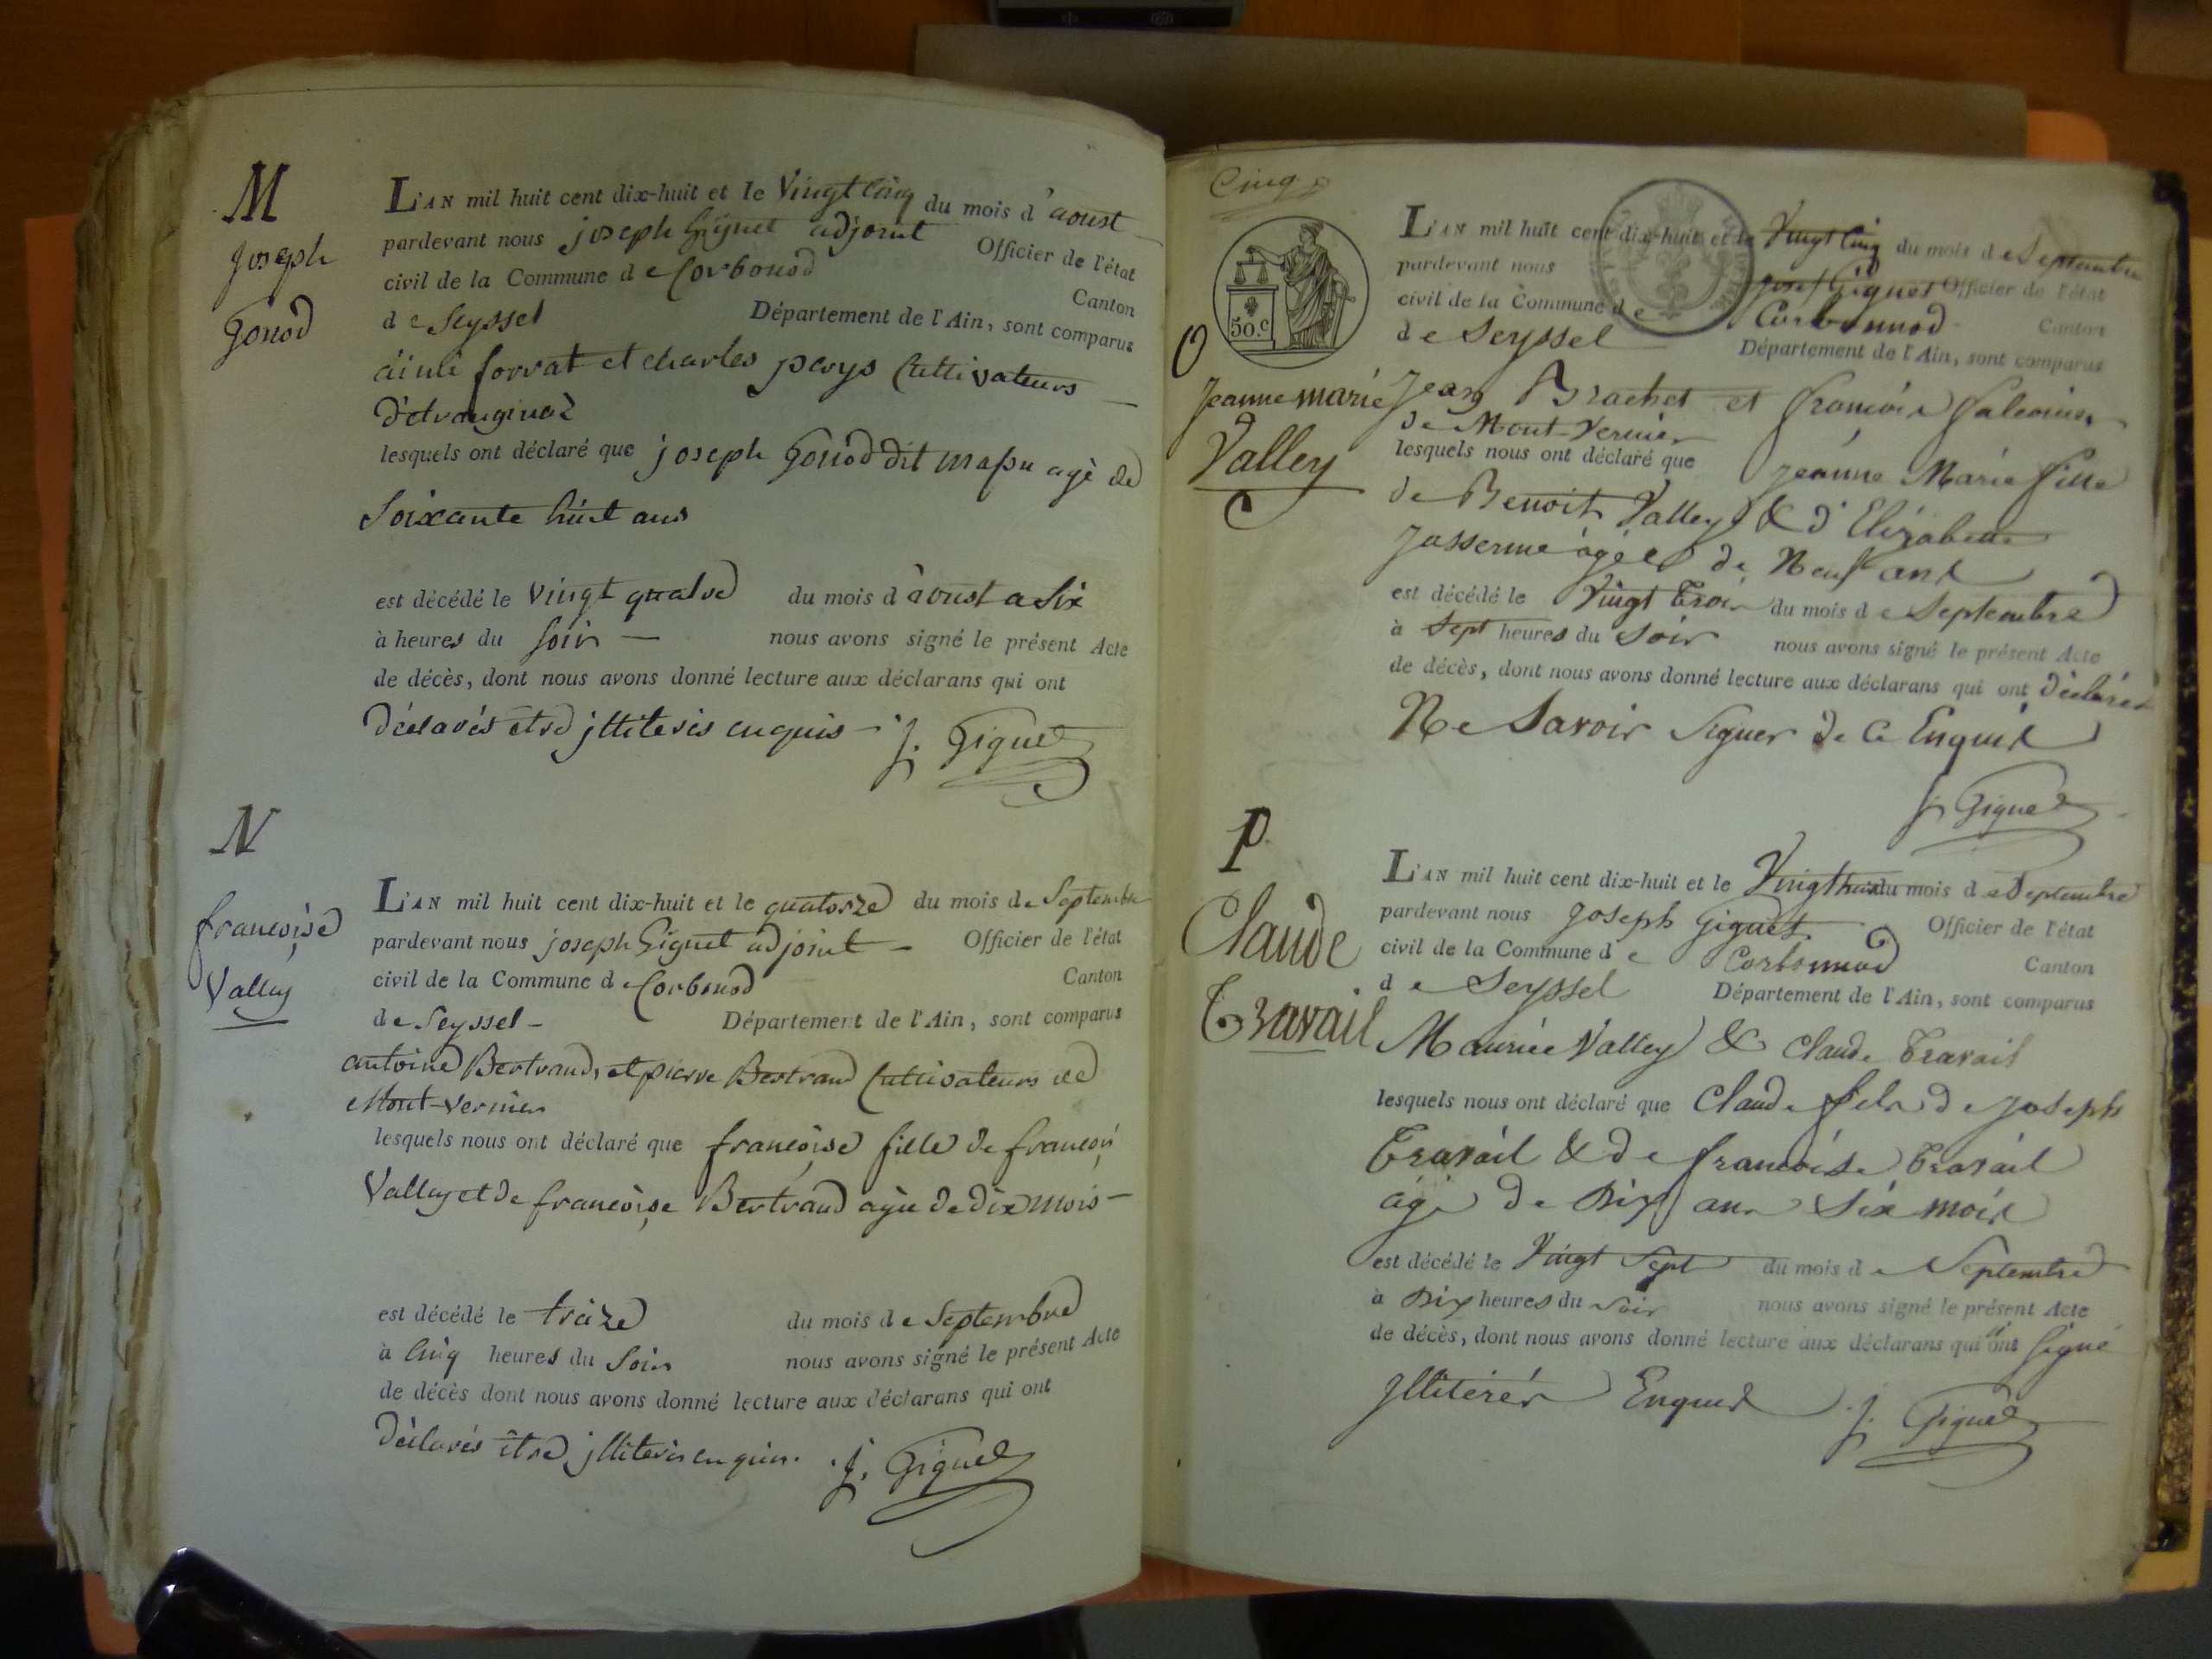 M
Joseph
Gonod
L'AN mil huit cent dix-huit et le Vingt Cinq du mois d'aoust
pardevant nous joseph Giguet adjoint Officier de l'état
civil de la Commune de Corbonod Canton
de Seyssel Département de l'Ain, sont comparus
forrat et charles perys Cultivateurs
d'etranginaz
lesquels ont déclaré que joseph Gonod dit massu agè de
Soixante huit ans
est décédé le vingt quatre du mois d'aoust a Six
à heures du Soir nous avons signé le présent Acte
de décès, dont nous avons donné lecture aux déclarans qui ont
déclarés etre jlliterés enquis J. Giguet
N
francoise
Vallay
L'AN mil huit cent dix-huit et le quatorze du mois de Septembre
pardevant nous joseph Giguet adjoint Officier de l'état
civil de la Commune de Corbonod Canton
de Seyssel Département de l'Ain, sont comparus
antoine Bertrand, et pierre Bertrand Cultivateurs de
Mont-Vernier
lesquels nous ont déclaré que francoise fille de francois
Vallay et de francoise Bertrand agée de dix mois
est décédé le traize du mois de Septembre
à Cinq heures du Soir nous avons signé le présent Acte
de décès dont nous avons donné lecture aux déclarans qui ont
déclarés être jlliterés enquis. J. Giguet
Cinq
50.c
O
Jeanne marie
Valley
L'AN mil huit cent dix-huit et le Vingt Cinq du mois de Septembre
pardevant nous Josef Giguet Officier de l'état
civil de la Commune de Corbonnod Canton
de Seyssel Département de l'Ain, sont comparus
Jean Brachet et françois
de Mont-Vernier
lesquels nous ont déclaré que jeanne Marie fille
de Benoit Valley & d'Elizabette
Jasserme agée de Neuf ans
est décédé le Vingt Trois du mois de Septembre
à Sept heures du Soir nous avons signé le présent Acte
de décès, dont nous avons donné lecture aux déclarans qui ont déclarés
Ne Savoir Signer de Ce Enquis
J. Giguet
P
Claude
Travail
L'AN mil huit cent dix-huit et le Vingt huit du mois de Septembre
pardevant nous Joseph Giguet Officier de l'état
civil de la Commune de Corbonnod Canton
de Seyssel Département de l'Ain, sont comparus
Maurice Valley & Claude Travail
lesquels nous ont déclaré que Claude fils de Joseph
Travail & de francoise Travail
agé de Dix ans Six mois
est décédé le Vingt Sept du mois de Septembre
à Dix heures du Soir nous avons signé le présent Acte
de décès, dont nous avons donné lecture aux déclarans qui ont Signé
jlliterés Enquis J. Giguet